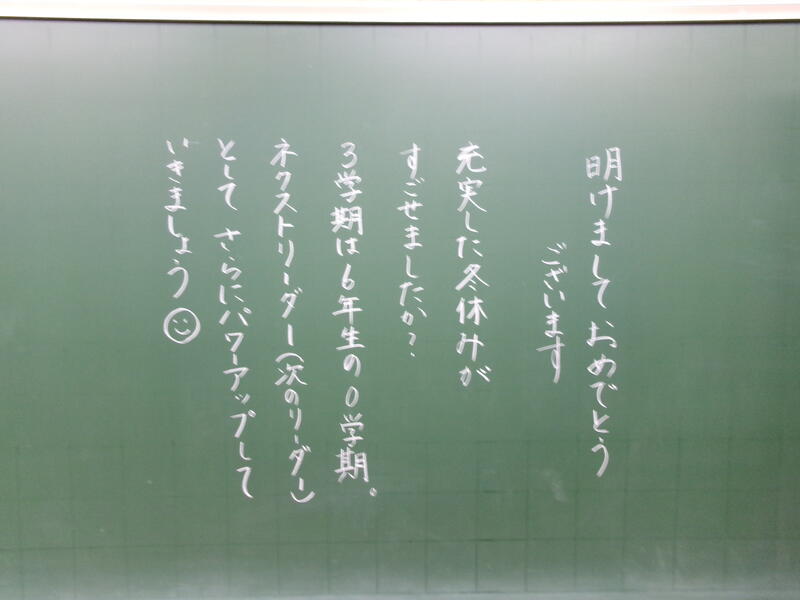 明けまして おめでとう
ございます
充実した冬休みが
すごせましたか?
3学期は6年生の0学期。
ネクストリーダー(次のリーダー)
として さらにパワーアップして
いきましょう